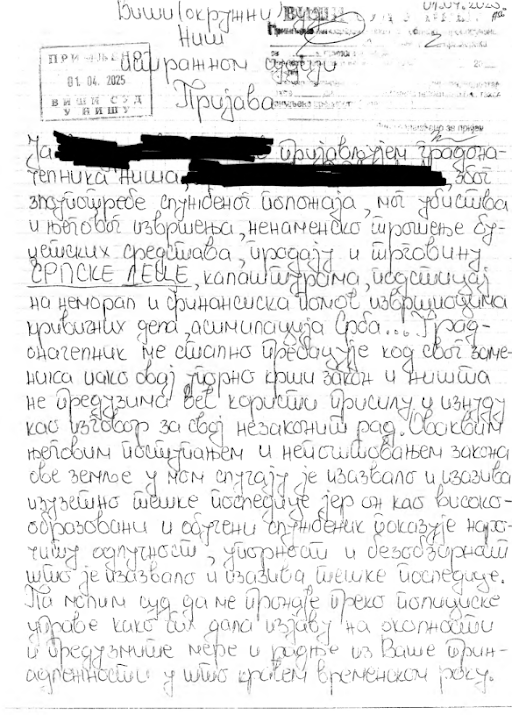 Виши (окружни) суд
Ниш
истражном судији
Пријава
ПРИМЉЕНО
01. 04. 2025
ВИШИ СУД
У НИШУ
Ја пријављујем градона-
челника Ниша, због
злоупотребе службеног положаја, мог убиства
и његовог извршења, ненаменско трошење бу-
џетских средстава, продају и трговину
СРПСКЕ ДЕЦЕ, малтретирања, подстицај
на неморал и финансиска помоћ извршиоцима
кривичних дела, асимилација Срба... Град-
оначелник ме стално пребацује код свог заме-
ника иако овај упорно крши закон и ништа
не предузима већ користи присилу и изнуду
као изговор за свој незаконит рад. Оваквим
његовим поступањем и непоштовањем закона
ове земље у мом случају је изазвало и изазива
изузетно тешке последице јер он као високо-
образовани и обучени службеник показује наро-
читу одлучност, упорност и безобзирност
што је изазвало и изазива тешке последице.
Па молим суд да ме пронађе преко полициске
управе како бих дала изјаву на околности
и предузмите мере и радње из Ваше прин-
адлежности у што краћем временском року.